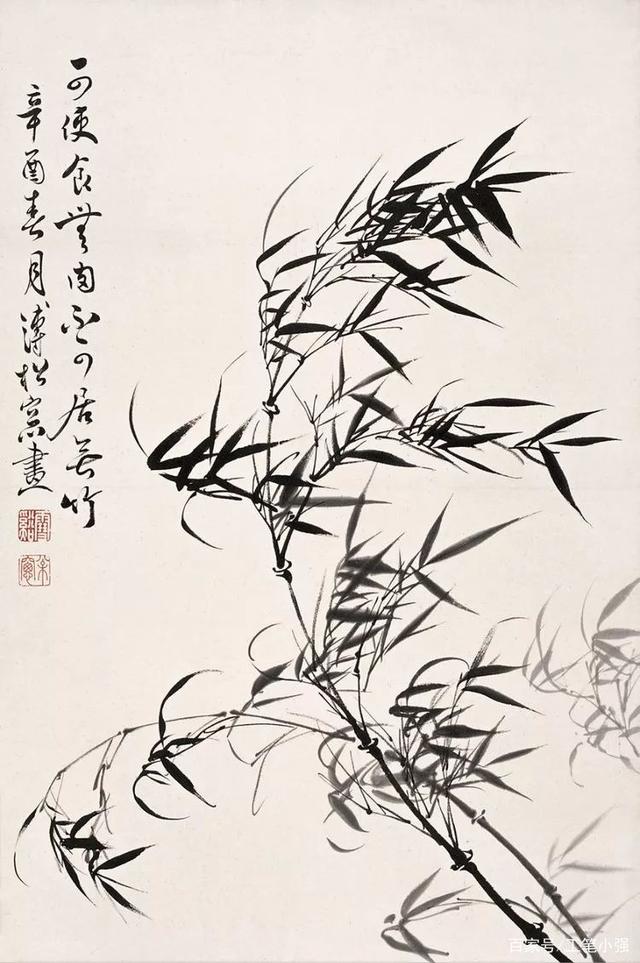 可使食無肉不可居無竹
辛酉春月溥松窗畫
百家号/工笔小强